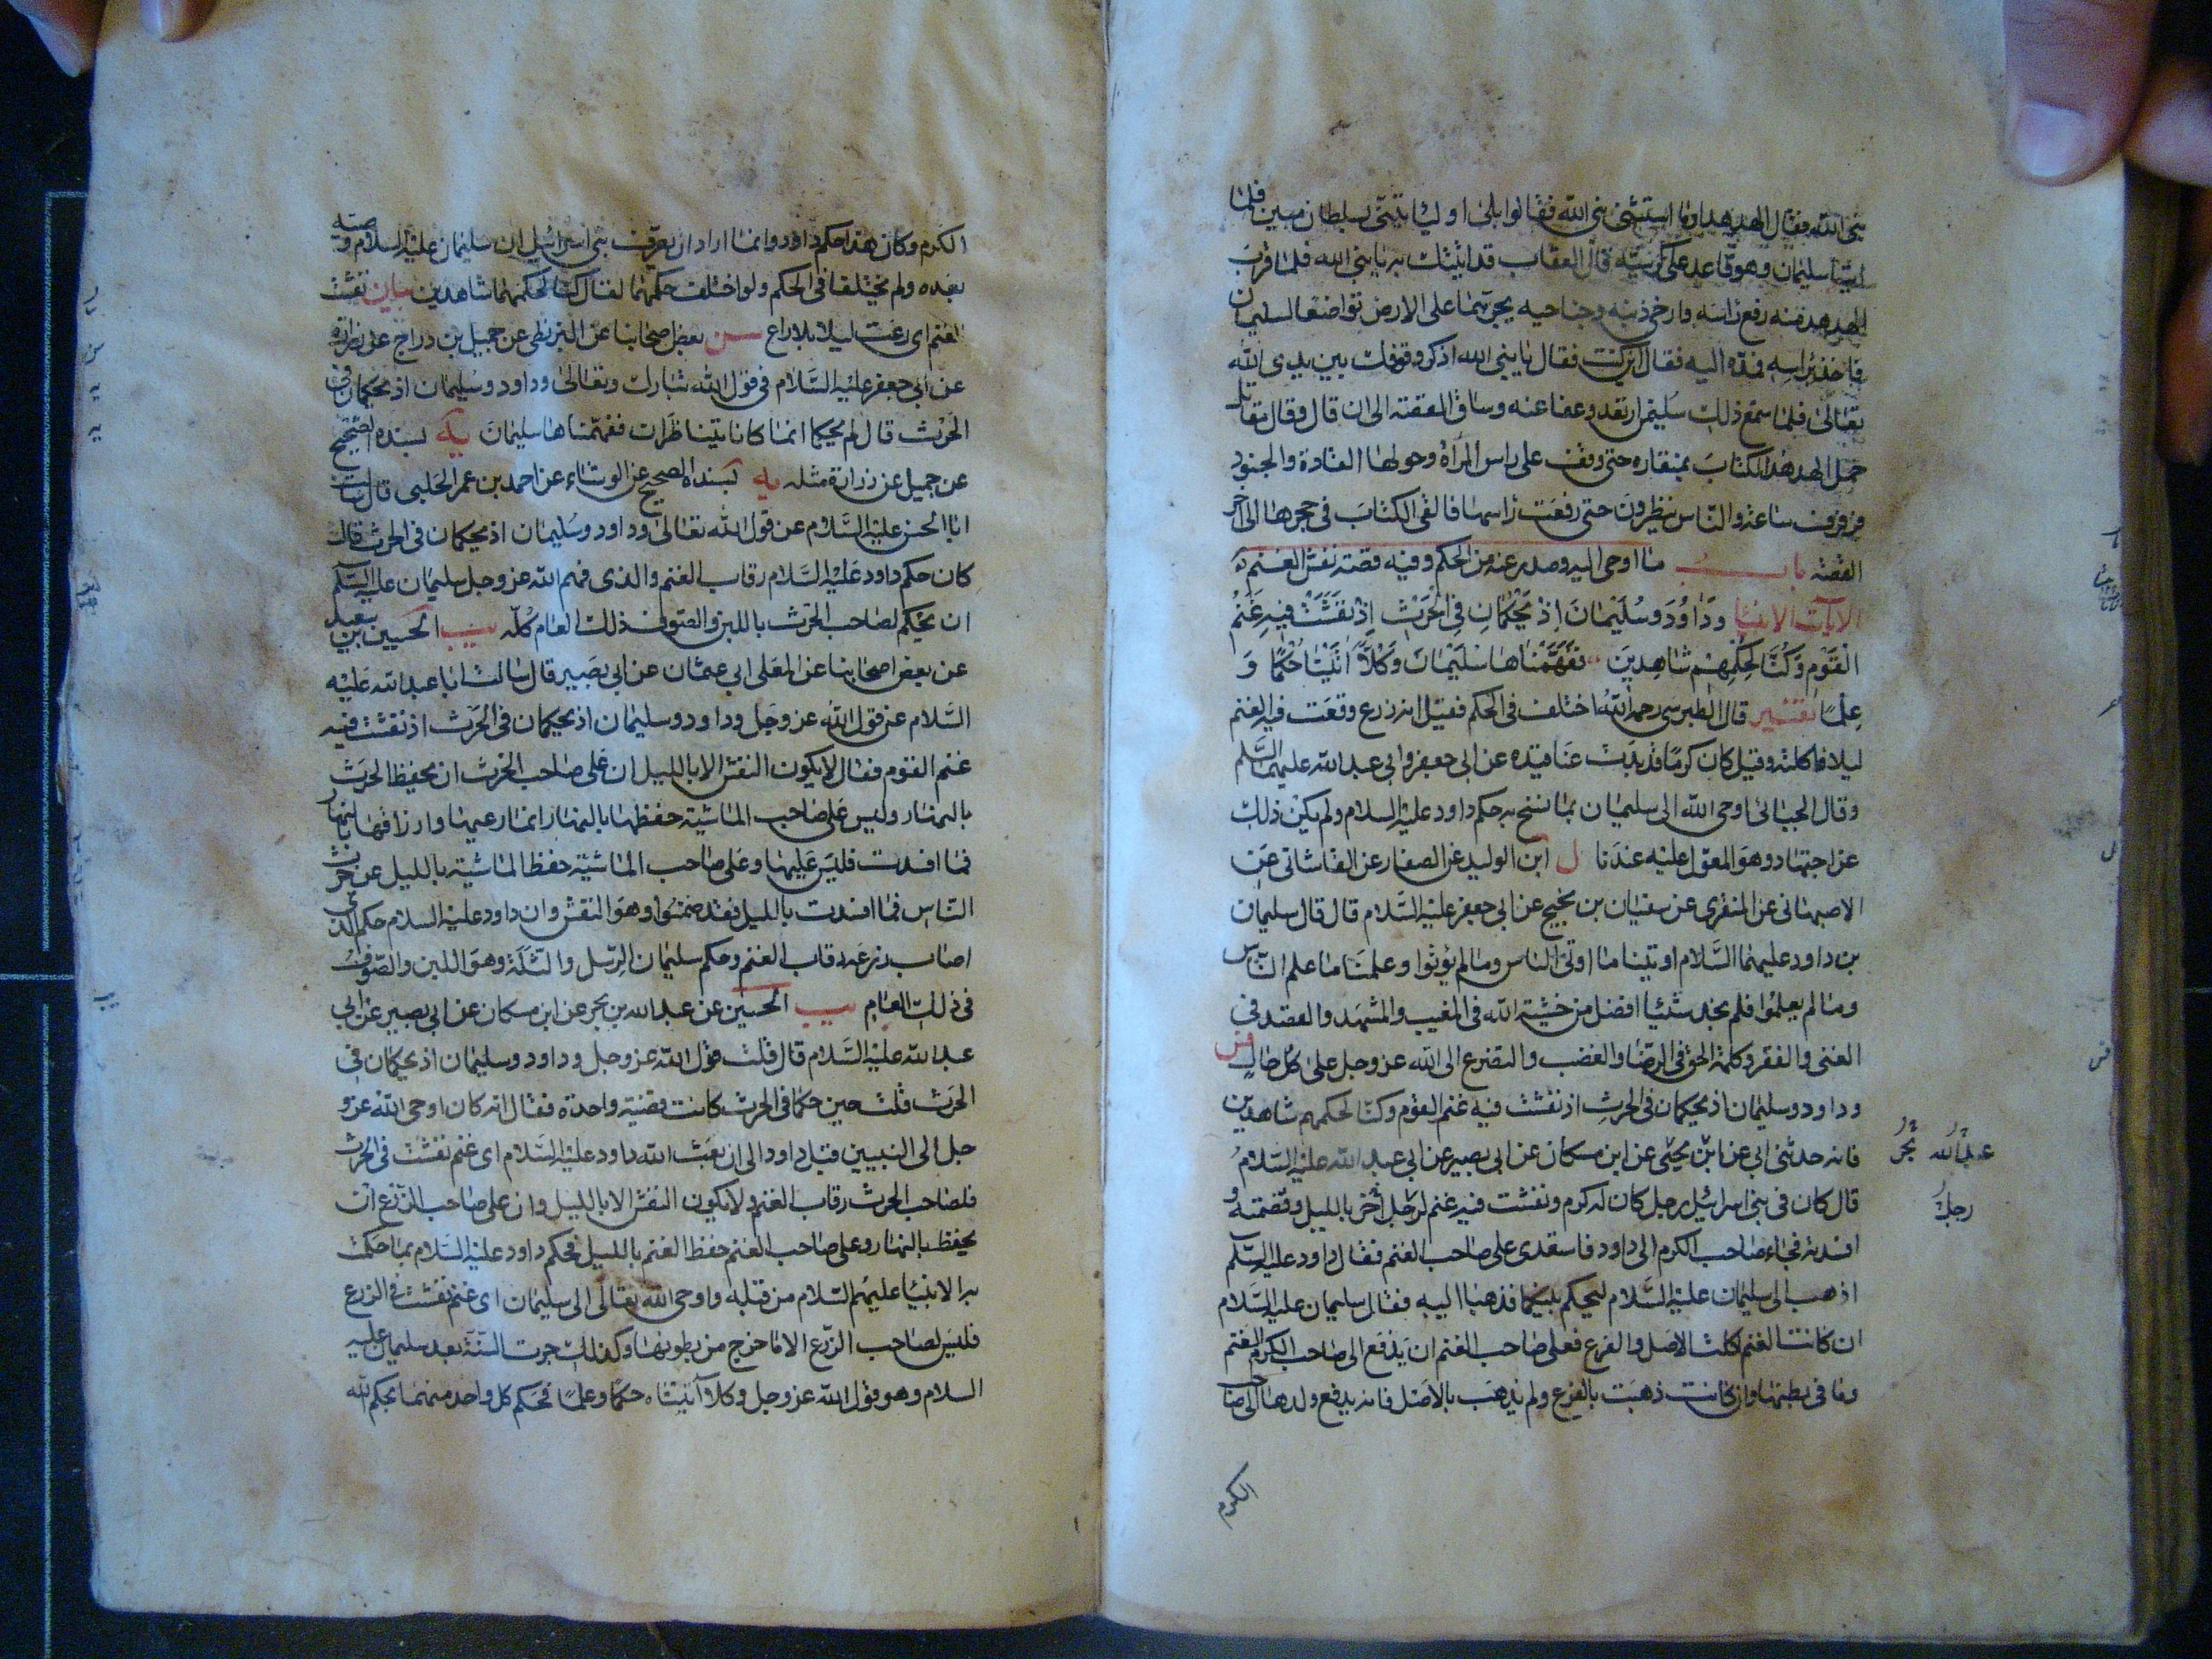 نبى الله فقال الهدهد اوما استثنى نبى الله فقالوا بلى او ليأتينى بسلطان مبين فلما
اتيا سليمان وهو قاعد على كرسيه قال العقاب قد اتيتك به يا نبى الله فلما قرب
الهدهد منه رفع راسه وارخى ذنبه وجناحيه يجرهما على الارض تواضعا لسليمان
فاخذ براسه فمده اليه فقال اين كنت فقال يا نبى الله اذكر وقوفك بين يدى الله
تعالى فلما سمع ذلك سليمن ارتعد وعفا عنه وساق القصة الى ان قال وقال مقاتل
حمل الهدهد الكتاب بمنقاره حتى وقف على راس المرأة وحولها القادة والجنود
فرفرف ساعة والناس ينظرون حتى رفعت راسها فالقى الكتاب فى حجرها الى اخر
القصة باب ما اوحى اليه وصدر عنه من الحكم وفيه قصة نفش الغنم
الآيات الانبيا وَدَاوُدَ وَسُلَيْمَانَ اِذْ يَحْكُمَانِ فِى الْحَرْثِ اِذْ نَفَشَتْ فِيهِ غَنَمُ
الْقَوْمِ وَكُنَّا لِحُكْمِهِمْ شَاهِدِينَ فَفَهَّمْنَاهَا سُلَيْمَانَ وَكُلّاً اٰتَيْنَا حُكْمًا وَ
عِلْمًا تفسير قال الطبرسى رحمه الله اختلف فى الحكم فقيل انه زرع وقعت فيه الغنم
ليلا فاكلته وقيل كان كرما قد بدت عناقيده عن ابى جعفر وابى عبد الله عليهما السلم
وقال الجبائى اوحى الله الى سليمان بما نسخ به حكم داود عليه السلام ولم يكن ذلك
عن اجتهاد وهو المعول عليه عندنا ل ابن الوليد عن الصفار عن القاشانى عن
الاصبهانى عن المنقرى عن سفيان بن نجيح عن ابى جعفر عليه السلام قال قال سليمان
بن داود عليهما السلام اوتينا ما اوتى الناس وما لم يؤتوا وعلمنا ما علم الناس
وما لم يعلموا فلم نجد شيئا افضل من خشية الله فى المغيب والمشهد والقصد فى
الغنى والفقر وكلمة الحق فى الرضا والغضب والتضرع الى الله عز وجل على كل حال فس
وداود وسليمان اذ يحكمان فى الحرث اذ نفشت فيه غنم القوم وكنا لحكمهم شاهدين
فانه حدثنى ابى عن ابن يحيى عن ابن مسكان عن ابى بصير عن ابى عبد الله عليه السلام
عبد الله بحر
قال كان فى بنى اسرائيل رجل كان له كرم ونفشت فيه غنم لرجل اخر بالليل وقضمته و
رجل
افسدته فجاء صاحب الكرم الى داود فاستعدى على صاحب الغنم فقال داود عليه السلم
اذهب الى سليمان عليه السلام ليحكم بينكما فذهبا اليه فقال سليمان عليه السلام
ان كانت الغنم اكلت الاصل والفرع فعلى صاحب الغنم ان يدفع الى صاحب الكرم الغنم
وما فى بطنها وان كانت ذهبت بالفرع ولم يذهب بالاصل فانه يدفع ولدها الى صاحب
الكرم
الكرم وكان هذا حكم داود وانما اراد ان يعرف بنى اسرائيل ان سليمان عليه السلام وصيه
بعده ولم يختلفا فى الحكم ولو اختلف حكمهما لقال كنا لحكمهما شاهدين بيان نفشت
الغنم اى رعت ليلا بلا راع سن بعض اصحابنا عن البزنطى عن جميل بن دراج عن زرارة
عن ابى جعفر عليه السلام فى قول الله تبارك وتعالى وداود وسليمان اذ يحكمان فى
الحرث قال لم يحكما انما كانا يتناظران ففهمناها سليمان يه بسنده الصحيح
عن جميل عن زرارة مثله يه بسنده الصحيح عن الوشاء عن احمد بن عمر الحلبى قال سالت
ابا الحسن عليه السلام عن قول الله تعالى وداود وسليمان اذ يحكمان فى الحرث قال
كان حكم داود عليه السلام رقاب الغنم والذى فهم الله عز وجل سليمان عليه السلم
ان يحكم لصاحب الحرث باللبن والصوف ذلك العام كله يب الحسين بن سعيد
عن بعض اصحابنا عن المعلى ابى عثمان عن ابى بصير قال سالت ابا عبد الله عليه
السلام عن قول الله عز وجل وداود وسليمان اذ يحكمان فى الحرث اذ نفشت فيه
غنم القوم فقال لا يكون النفش الا بالليل ان على صاحب الحرث ان يحفظ الحرث
بالنهار وليس على صاحب الماشية حفظها بالنهار انما رعيها وارزاقها بالنهار
فما افسدت فليس عليها وعلى صاحب الماشية حفظ الماشية بالليل عن حرث
الناس فما افسدت بالليل فقد ضمنوا وهو النفش وان داود عليه السلام حكم للذى
اصاب زرعه رقاب الغنم وحكم سليمان الرسل والثلة وهو اللبن والصوف
فى ذلك العام يب الحسين عن عبد الله بن بحر عن ابن مسكان عن ابى بصير عن ابى
عبد الله عليه السلام قال قلت قول الله عز وجل وداود وسليمان اذ يحكمان فى
الحرث قلت حين حكما فى الحرث كانت قضية واحدة فقال انه كان اوحى الله عز و
جل الى النبيين قبل داود الى ان بعث الله داود عليه السلام اى غنم نفشت فى الحرث
فلصاحب الحرث رقاب الغنم ولا يكون النفش الا بالليل وان على صاحب الزرع ان
يحفظ بالنهار وعلى صاحب الغنم حفظ الغنم بالليل فحكم داود عليه السلام بما حكمت
به الانبيا عليهم السلام من قبله واوحى الله تعالى الى سليمان اى غنم نفشت فى الزرع
فليس لصاحب الزرع الا ما خرج من بطونها وكذلك جرت السنة بعد سليمان عليه
السلام وهو قول الله عز وجل وكلا آتيناه حكما وعلما فحكم كل واحد منهما بحكم الله